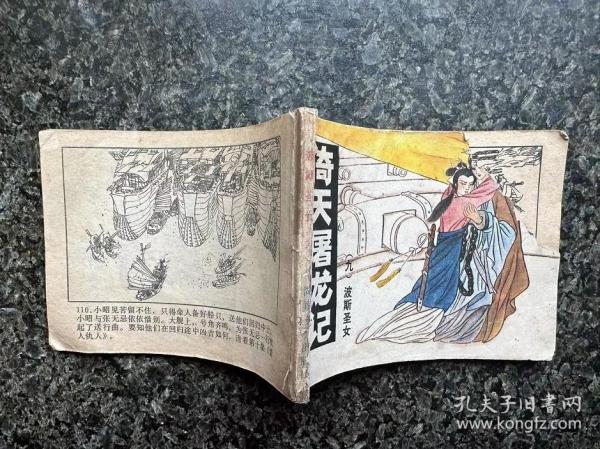 倚天屠龙记
九
波斯圣女
110.小昭见苦留不住，只得命人备好船只，送他们回归中
小昭与张无忌依依惜别。大舰上，号角齐鸣，为张无忌一行
起了送行曲。要知他们在回归途中凶吉如何，请看第十集《
人仇人》。
孔夫子旧书网
www.kongfz.com